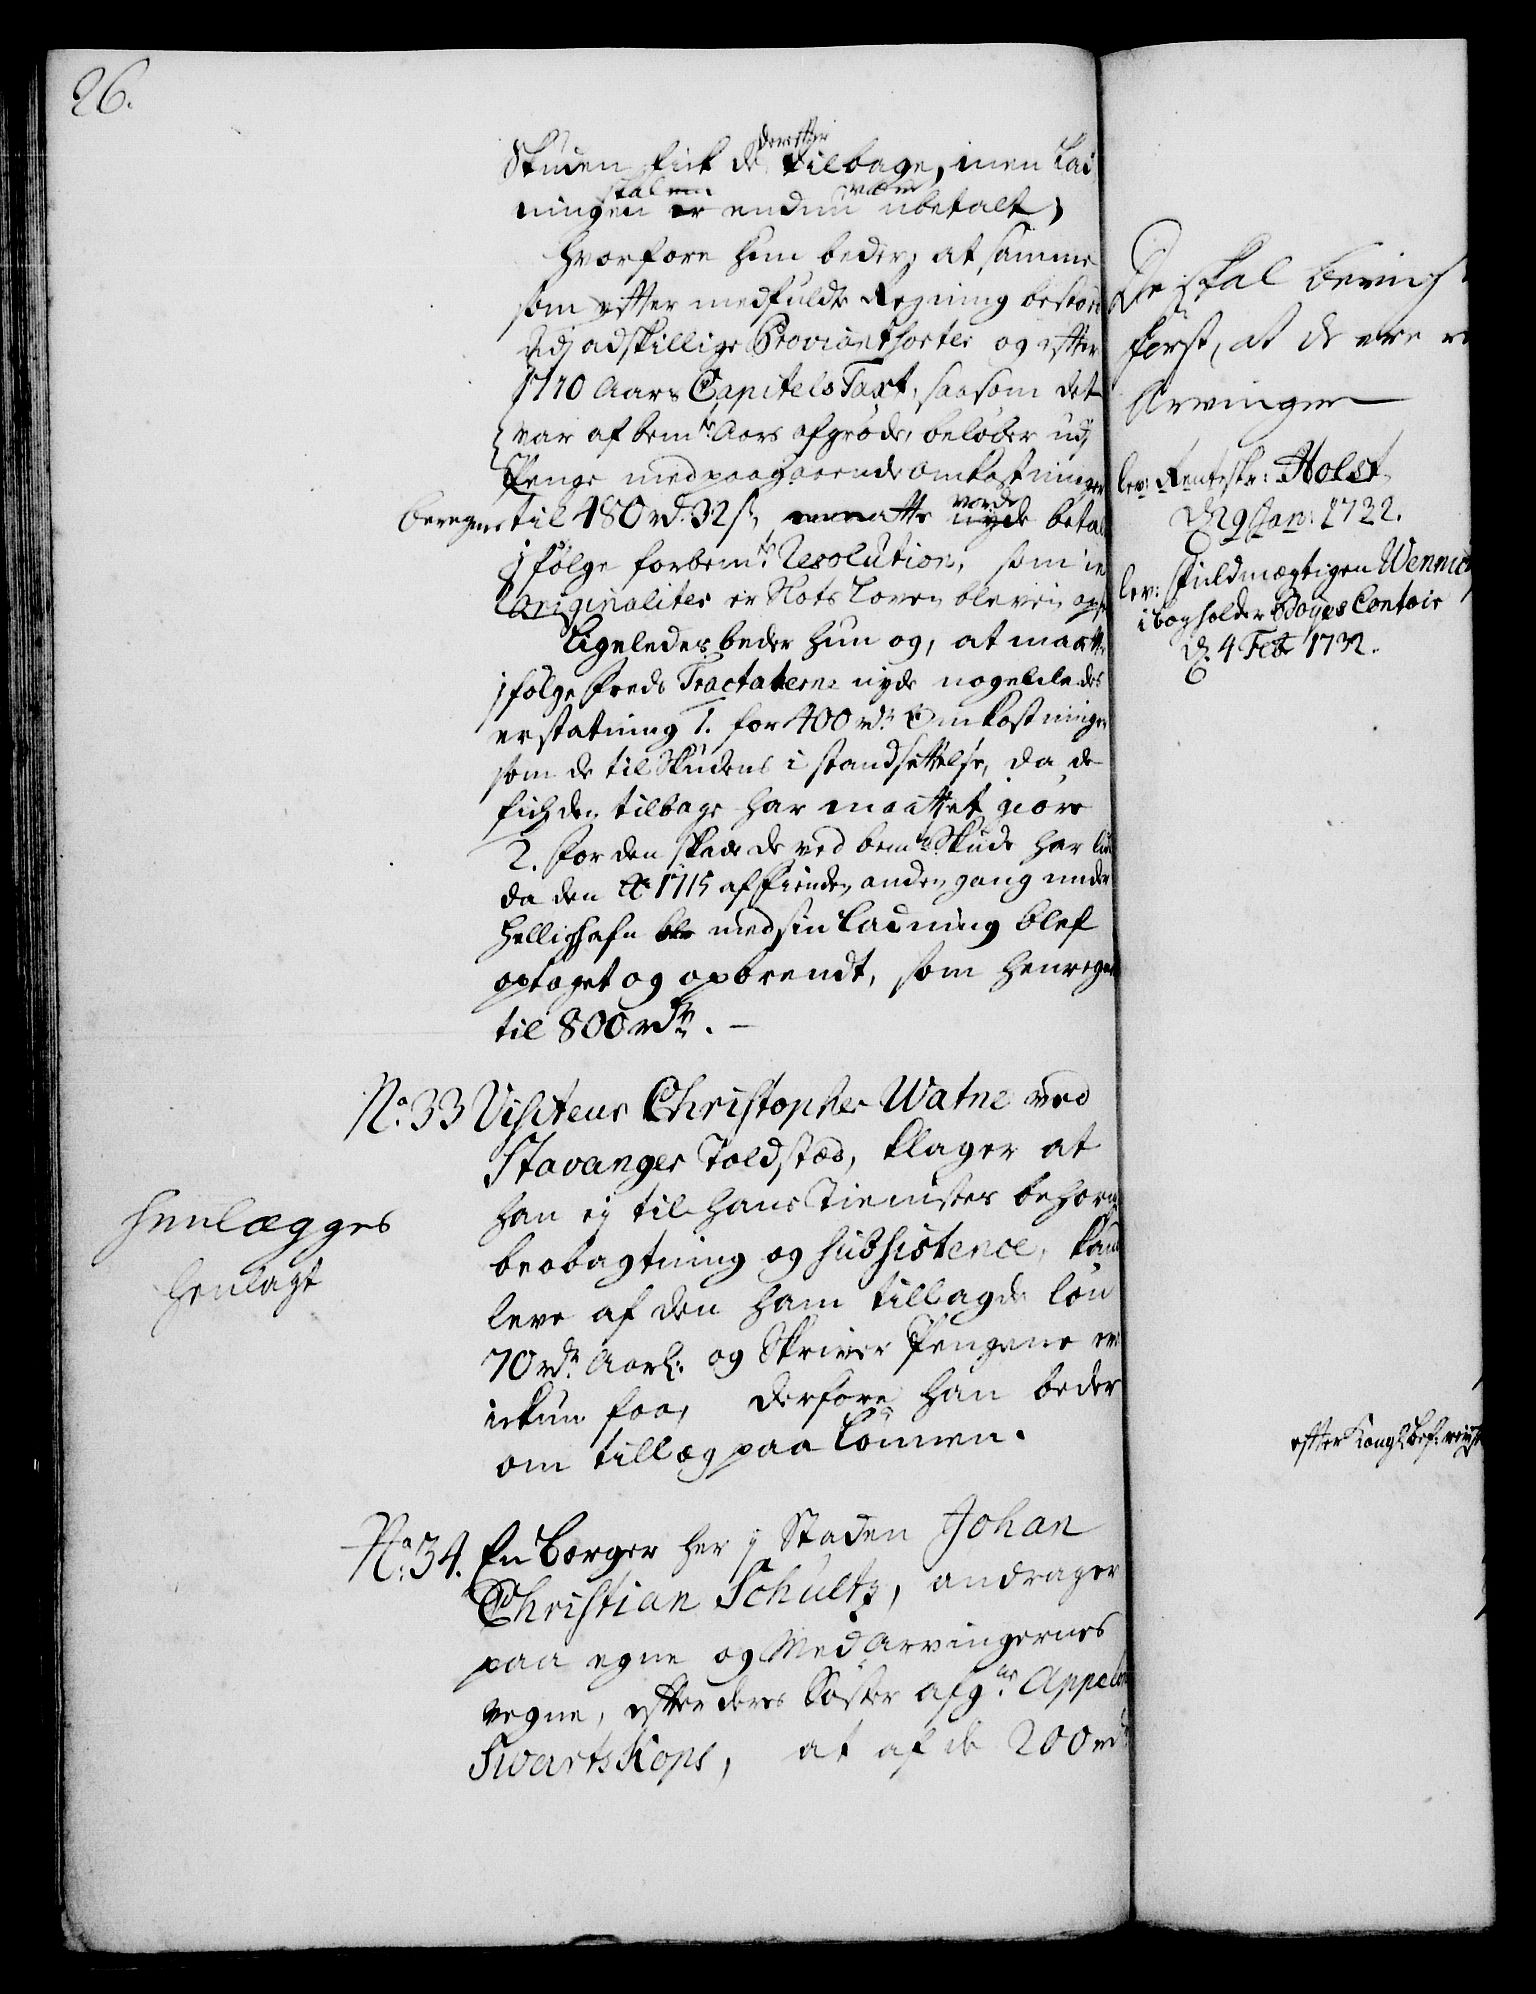 26.
Skuden fick de derefter tilbage, men Lad
ningen er skal endnu være ubetalt,
hvorfore hun beder, at samme
som efter medfulde Regning bestaar
udj adskillige Proviantsorter og efter
1710 Aars Capitels Taxt, saasom det
var af bemte Aars afgrøde, beløber udj
Penge med paagaaende omkostninger
beregnet til 480 rd. 32 s, maatte nyde vorde betal
jfølge forbemte Resolution, som in
Originaliter er Slots Loven bleven
Ligeledes beder hun og, at maatte
jfølge Freds Tractaterne nyde nogenledes
erstatning 1. for 400 rdr Omkostninger
som de til Skudens i standsættelse, da de
fich den tilbage har maattet giøre
2. For den skade de ved bemte Skude har lidt
da den Ao 1715 af Fienden anden gang under
Hellighafn ble med sin Ladning blef
optaget og opbrendt, som henregnes
til 800 rdr. –
No. 33 Visiteur Christopher Watne ved
Stavanger Toldsted, klager at
han ej til hans Tienistes behørig
beobagtning og subsistence, kand
leve af den ham tillagde løn
70 rdr Aarl: og Skriver Pengene er
ickun faa, derfore han beder
om tillæg paa Lønnen.
henlægges
henlagt
No. 34. En Borger her j Staden Johan
Christian Schultz, andrager
paa egne og Med Arvingernes
vegne, efter deres Søster afgne Appelone
Swarts Kops, at af de 200 rdr
De skal bevise
først, at de ere
Arvinger
lev: Renteskr: Holst
d. 9 Jan: 1732.
lev: fuldmægtigen Wennick
i bogholder Boyes Contoir
d. 4 Feb 1732.
efter Kongl: bef: